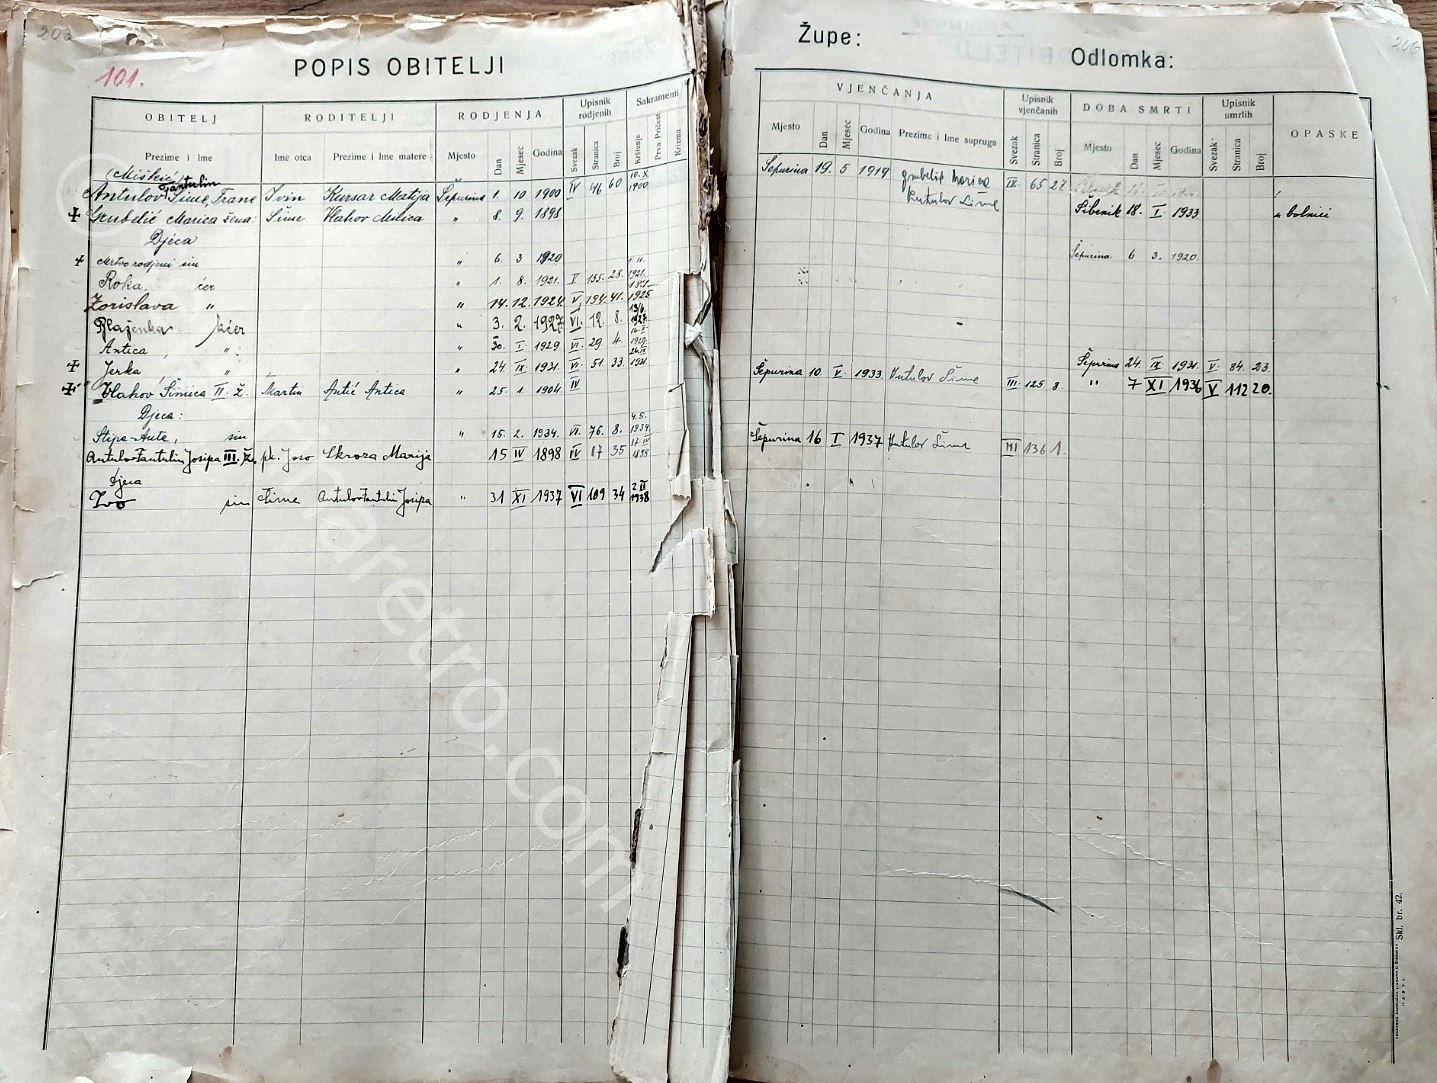 202
101.
POPIS OBITELJI
OBITELJ RODITELJI RODJENJA Upisnik rodjenih Sakramenti
Prezime i Ime Ime otca Prezime i Ime matere Mjesto Dan Mjesec Godina Svezak Stranica Broj Krštenje Prva Pričest Krizma
(Miškić) Fantulin 10. X
Antulov Šime Frane Ivin Kursar Matija Šepurina 1. 10 1900 IV 46 60 1900
Grubelić Marica žena: Šime Vlahov Matica " 8. 9. 1898
Djeca
Mrtvo rodjeni sin " 6. 3 1920
Roka kćer " 1. 8. 1921. V 155. 28. 1921.
Zorislava " " 14. 12. 1924. V. 194. 41. 1925
Blaženka kćer " 3. 2. 1927. VI. 12. 8. 1927.
Antica, " " 30. I. 1929. VI. 29 4 1929.
Jerka " " 24 IX 1931. VI 51. 33. 1931.
Vlahov Šimica II. ž. Martin Antić Antica " 25. 1. 1904. IV
Djeca: 4. 5.
Stipe-Ante, sin " 15. 2. 1934. VI. 76. 8. 1934.
Antulov Fantulin Josipa III. ž. pk. Joso Skroza Marija 15 IV 1898 IV 17 35 1898
Djeca
Ivo sin Šime Antulov Fantulin Josipa " 31 XI 1937 VI 109 34 1938
Župe: Odlomka:
VJENČANJA Upisnik vjenčanih DOBA SMRTI Upisnik umrlih OPASKE
Mjesto Dan Mjesec Godina Prezime i Ime supruga Svezak Stranica Broj Mjesto Dan Mjesec Godina Svezak Stranica Broj
Šepurina 19. 5 1919 Grubelić Marica III. 65 27
Antulov Šime Šibenik 18. I. 1933. u bolnici
Šepurina 6 3. 1920.
Šepurina 24. IX 1931. V. 84. 23.
Šepurina 10. V. 1933. Antulov Šime III. 125. 8. " 7 XI 1936 V 112 20.
Šepurina 16 I 1937 Antulov Šime III 136 1.
Skl. br. 42.
maretro.com